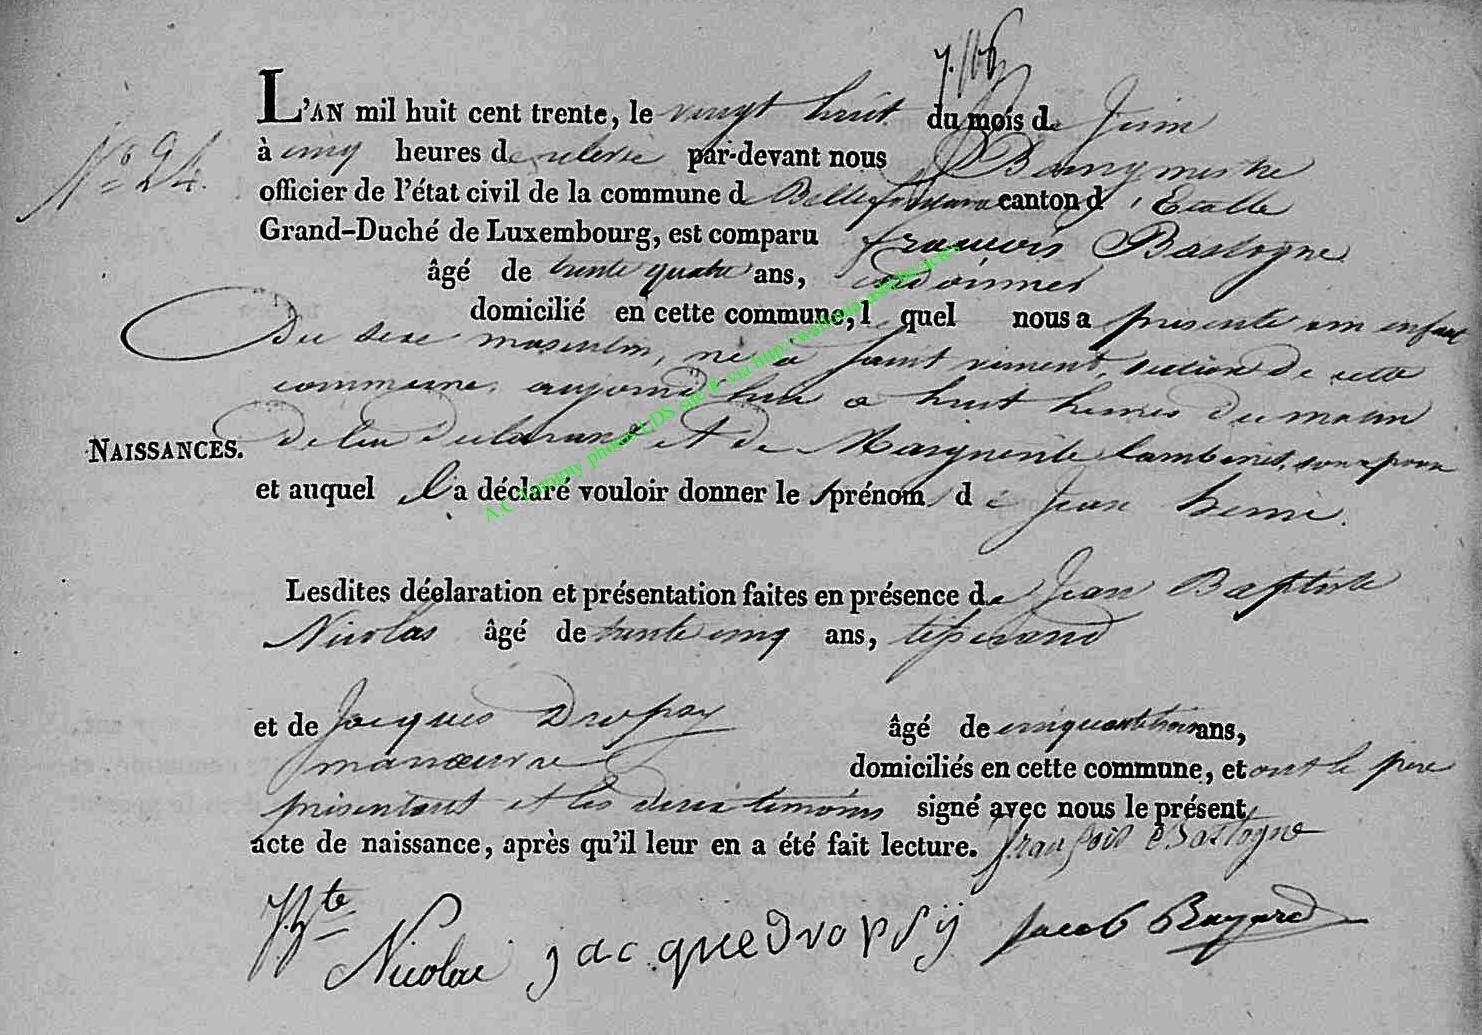 L'AN mil huit cent trente, le vingt huit du mois de Juin
N° 24.
à cinq heures de relevée par-devant nous Bourgmestre
officier de l'état civil de la commune de Bellefontaine canton d'Etalle
Grand-Duché de Luxembourg, est comparu françois Bastogne
âgé de trente quatre ans, cordonnier
domicilié en cette commune, lequel nous a présenté un enfant
Du sexe masculin, né à saint vincent, section de cette
commune, aujourd'hui a huit heures du matin
NAISSANCES.
De lui déclarant et de Marguerite Lambinet, son epouse
et auquel il a déclaré vouloir donner le prénom de Jean henri.
Lesdites déclaration et présentation faites en présence de Jean Baptiste
Nicolas âgé de trente cinq ans, tisserand
et de Jacques Dropsy âgé de cinquante trois ans,
manœuvre domiciliés en cette commune, et ont le père
présentant et les deux témoins signé avec nous le présent
acte de naissance, après qu'il leur en a été fait lecture. françois Bastogne
J Bte
Nicolas jacque Dropsÿ Jacob Bayard
A.C Tintigny photos LDS site & via http://wallonia-asbl.be/actes